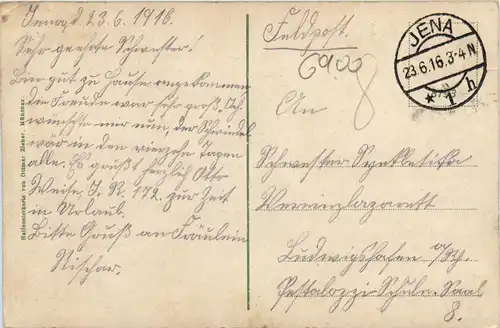 Jena, d. 23.6.1916.
Sehr geehrte Schwester!
Bin gut zu Hause angekommen
die Freude war sehr groß. Ich
wünschte mir nun der Schwindel
wär in den vierzehn Tagen
alle. Es grüßt herzlich Otto
Weise, J. R. 172. zur Zeit
in Urlaub.
Bitte Gruß an Fräulein
Nischar.
Hallenserkarte von Ottmar Zieher, München
Feldpost.
6900
8
JENA
23.6.16.3-4N
* 1 h
An
Schwester
Vereinslazarett
Ludwigshafen a/Rh.
Pestalozzi-Schule. Saal
8.